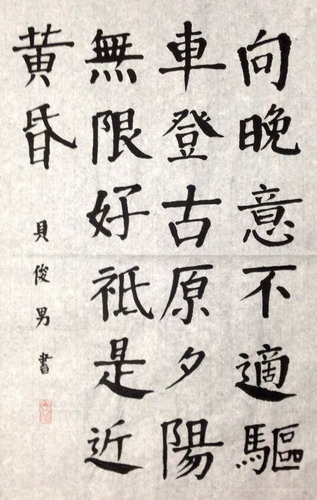 向晚意不適驅
車登古原夕陽
無限好祗是近
黃昏
貝俊男書